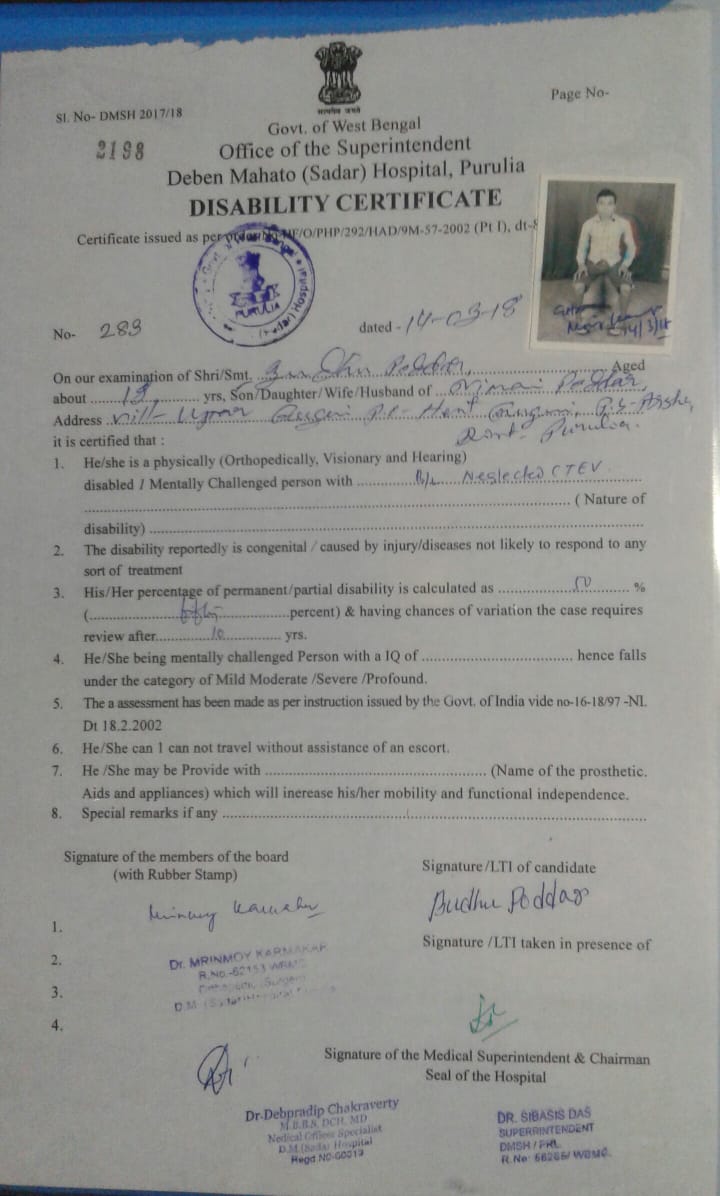 सत्यमेव जयते
Page No-
Sl. No- DMSH 2017/18
2198
Govt. of West Bengal
Office of the Superintendent
Deben Mahato (Sadar) Hospital, Purulia
DISABILITY CERTIFICATE
Certificate issued as per /O/PHP/292/HAD/9M-57-2002 (Pt I), dt-
PURULIA
No- 283
dated - 14-03-18
14/3/18
On our examination of Shri/Smt. Poddar, Aged
about yrs, Son/Daughter/Wife/Husband of Nimai Poddar,
Address Vill-
Dist- Purulia.
it is certified that :
1. He/she is a physically (Orthopedically, Visionary and Hearing)
disabled / Mentally Challenged person with B/L Neglected CTEV
( Nature of
disability)
2. The disability reportedly is congenital / caused by injury/diseases not likely to respond to any
sort of treatment
3. His/Her percentage of permanent/partial disability is calculated as 50 %
( fifty percent) & having chances of variation the case requires
review after 10 yrs.
4. He/She being mentally challenged Person with a IQ of hence falls
under the category of Mild Moderate /Severe /Profound.
5. The a assessment has been made as per instruction issued by the Govt. of India vide no-16-18/97 -NI.
Dt 18.2.2002
6. He/She can 1 can not travel without assistance of an escort.
7. He /She may be Provide with (Name of the prosthetic.
Aids and appliances) which will inerease his/her mobility and functional independence.
8. Special remarks if any
Signature of the members of the board
(with Rubber Stamp)
Signature/LTI of candidate
Budhu Poddar
1. Mrinmoy Karmakar
Signature /LTI taken in presence of
2. Dr. MRINMOY KARMAKAR
R.No.-62153 WBMC
3.
4.
Signature of the Medical Superintendent & Chairman
Seal of the Hospital
Dr-Debpradip Chakraverty
M.B.B.S, DCH, MD
Medical Officer Specialist
D.M (Sadar Hospital
DR. SIBASIS DAS
SUPERRINTENDENT
DMSH / PRL